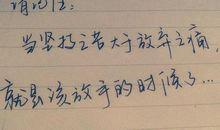 当坚持之苦大于放弃之痛,
就是该放手的时候了...